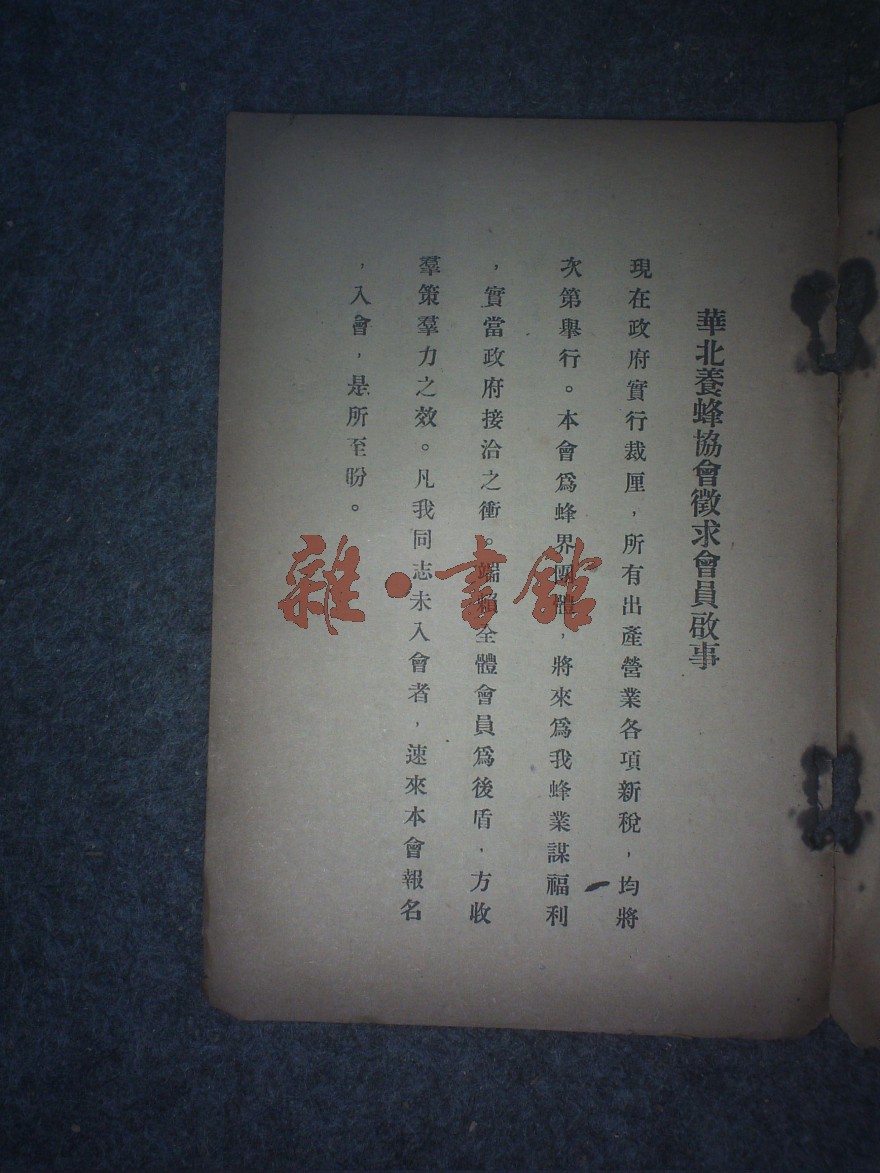 華北養蜂協會徵求會員啟事
現在政府實行裁厘，所有出產營業各項新稅，均將
次第舉行。本會爲蜂界團體，將來爲我蜂業謀福利
，實當政府接洽之衝。端賴全體會員爲後盾，方收
羣策羣力之效。凡我同志未入會者，速來本會報名
，入會，是所至盼。
雜·書館